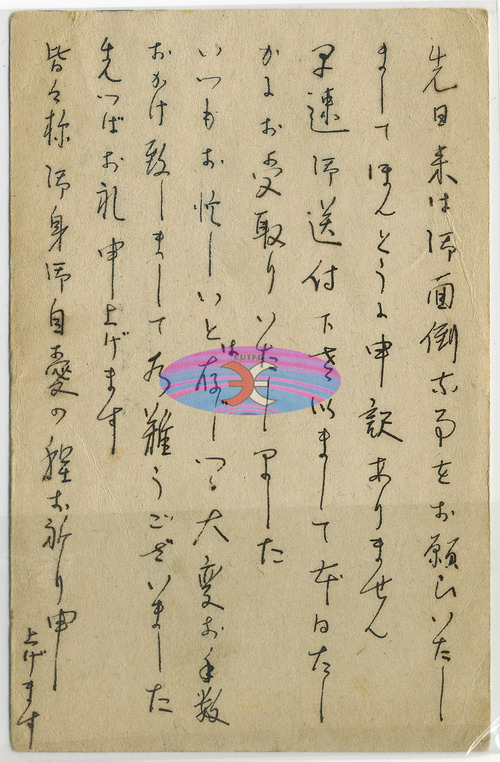 先日来は御面倒な事をお願ひいたし
ましてほんとうに申訳ありません
早速御送付下さいまして本日たし
かにお受取りいたしました
いつもお忙しいとは存じつゝ大変お手数
おかけ致しまして有難うございました
先づはお礼申上げます
皆々様御身御自愛の程お祈り申
上げます
CUTRO